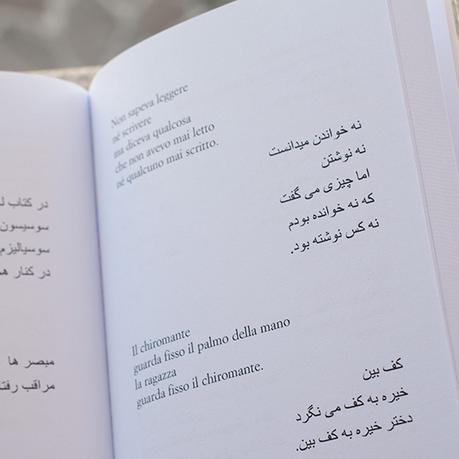 Non sapeva leggere
né scrivere
ma diceva qualcosa
che non avevo mai letto
né qualcuno mai scritto.
نه خواندن میدانست
نه نوشتن
اما چیزی می گفت
که نه خوانده بودم
نه کس نوشته بود.
Il chiromante
guarda fisso il palmo della mano
la ragazza
guarda fisso il chiromante.
کف بین
خیره به کف می نگرد
دختر خیره به کف بین.
در کتاب
سوسیسون
سوسیالیزم
در کنار
مبصر ها
مراقب